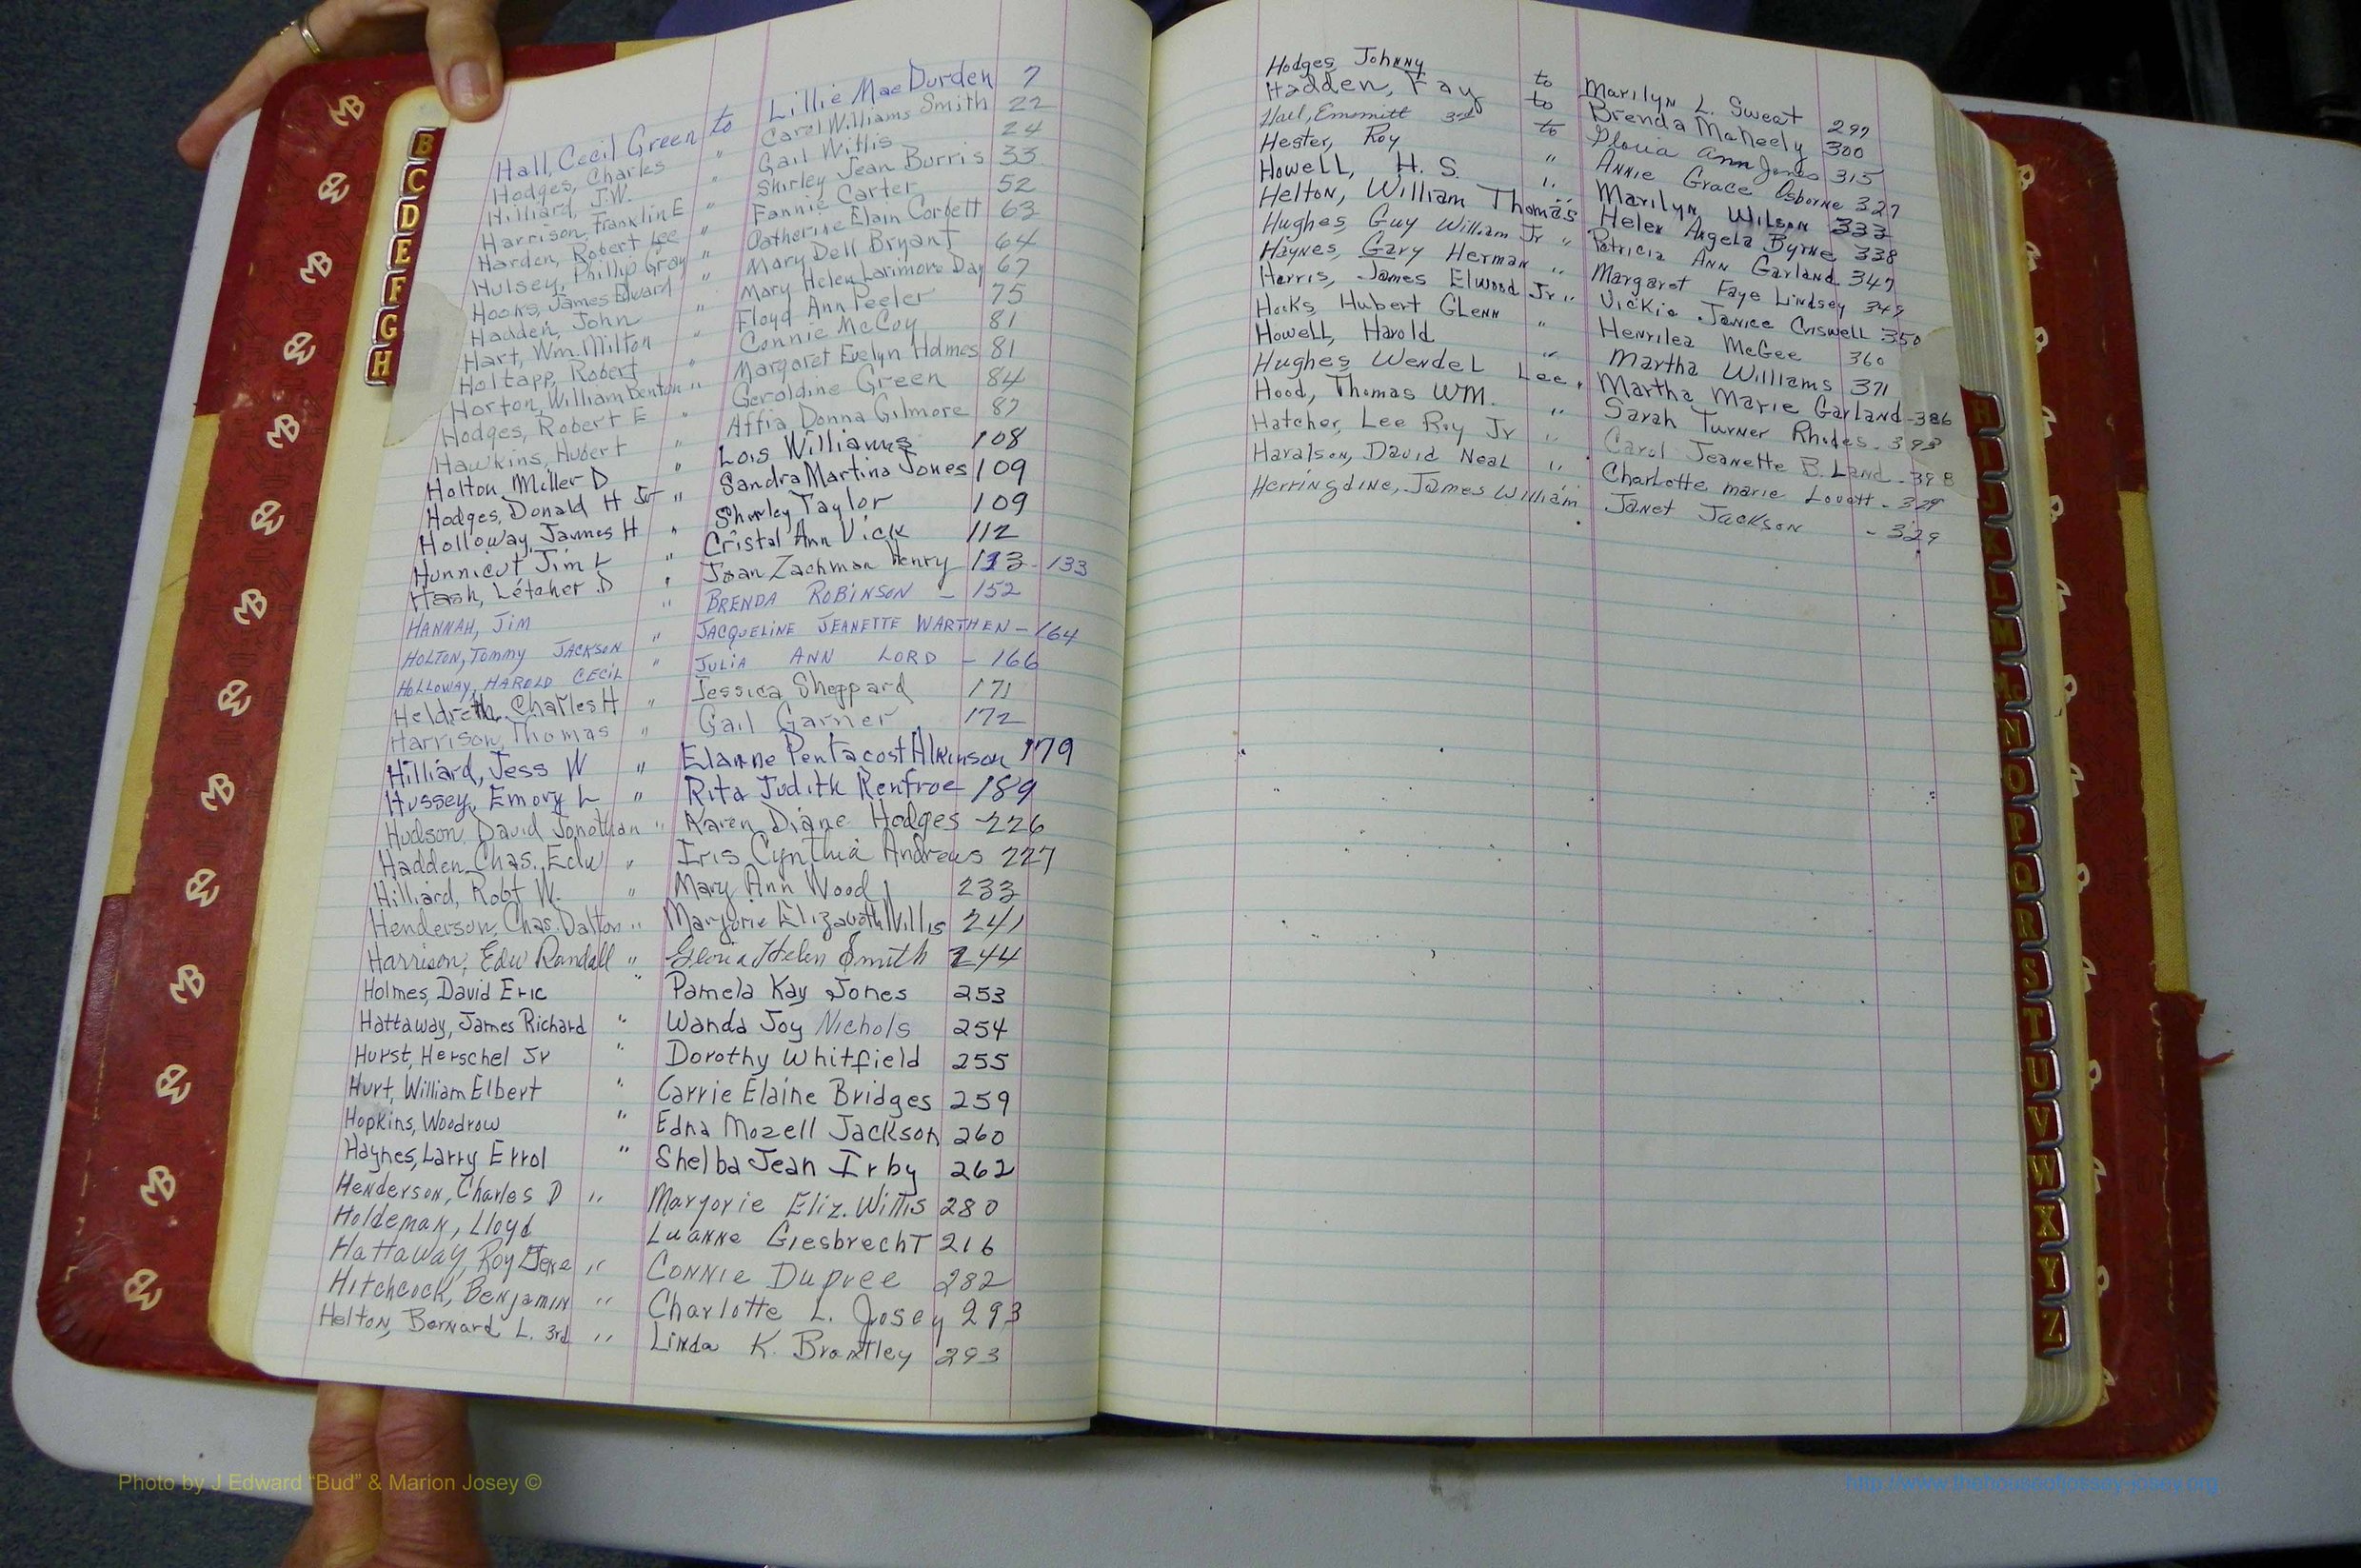 Hall, Cecil Green to Lillie Mae Durden 7
Hodges, Charles " Carol Williams Smith 22
Hilliard, J.W. " Gail Willis 24
Harrison, Franklin E " Shirley Jean Burris 33
Harden, Robert Lee " Fannie Carter 52
Hulsey, Phillip Gray " Catherine Elain Corbett 63
Hooks, James Edward " Mary Dell Bryant 64
Hadden, John " Mary Helen Larimore Day 67
Hart, Wm. Milton " Floyd Ann Peeler 75
Holtapp, Robert " Connie McCoy 81
Horton, William Benton " Margaret Evelyn Holmes 81
Hodges, Robert E " Geraldine Green 84
Hawkins, Hubert " Affia Donna Gilmore 87
Holton, Miller D " Lois Williams 108
Hodges, Donald H Jr " Sandra Martina Jones 109
Holloway, James H " Shirley Taylor 109
Hunnicut Jim L " Cristal Ann Vick 112
Hash, Letcher D " Joan Zachman Henry 113-133
HANNAH, JIM " BRENDA ROBINSON - 152
HOLTON, TOMMY JACKSON " JACQUELINE JEANETTE WARTHEN - 164
HOLLOWAY, HAROLD CECIL " JULIA ANN LORD - 166
Heldreth, Charles H " Jessica Sheppard 171
Harrison, Thomas " Gail Garner 172
Hilliard, Jess W " Elanne Pentacost Alkinson 179
Hussey, Emory L " Rita Judith Renfroe 189
Hudson, David Jonathan " Karen Diane Hodges -226
Hadden, Chas. Edw " Iris Cynthia Andrews 227
Hilliard, Robt W. " Mary Ann Wood 233
Henderson, Chas. Dalton " Marjorie Elizabeth Willis 241
Harrison, Edw Randall " Gloria Helen Smith 244
Holmes, David Eric " Pamela Kay Jones 253
Hattaway, James Richard " Wanda Joy Nichols 254
Hurst, Herschel Jr " Dorothy Whitfield 255
Hurt, William Elbert " Carrie Elaine Bridges 259
Hopkins, Woodrow " Edna Mozell Jackson 260
Haynes, Larry Errol " Shelba Jean Irby 262
Henderson, Charles D " Marjorie Eliz. Willis 280
Holdeman, Lloyd Luanne Giesbrecht 216
Hattaway, Roy Gene " Connie Dupree 282
Hitchcock, Benjamin " Charlotte L. Josey 293
Helton, Bernard L. 3rd " Linda K. Brantley 293
Hodges, Johnny to Marilyn L. Sweat 297
Hadden, Fay to Brenda McNeely 300
Hall, Emmitt 3rd to Gloria Ann Jones 315
Hester, Roy " Annie Grace Osborne 327
Howell, H. S. " Marilyn Wilson 333
Helton, William Thomas " Helen Angela Byrne 338
Hughes, Guy William Jr " Patricia Ann Garland 347
Haynes, Gary Herman " Margaret Faye Lindsey 349
Harris, James Elwood Jr " Vickie Janice Criswell 350
Hooks, Hubert Glenn " Henrilea McGee 360
Howell, Harold " Martha Williams 371
Hughes Wendel Lee " Martha Marie Garland - 386
Hood, Thomas WM. " Sarah Turner Rhodes - 393
Hatcher, Lee Roy Jr " Carol Jeanette B. Land - 398
Haralson, David Neal " Charlotte marie Lovett -
Herringdine, James William Janet Jackson - 329
B
C
D
E
F
G
H
H
L
M
Mc
N
O
P
Q
R
S
T
U
V
W
X
Y
Z
Photo by J Edward "Bud" & Marion Josey ©
http://www.thehouseofjossey-josey.org